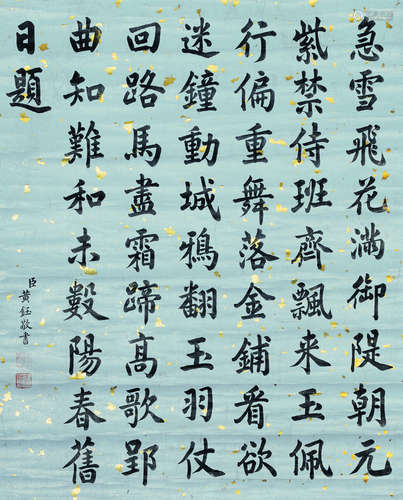 急雪飛花滿御隄朝元
紫禁侍班齊飄来玉佩
行偏重舞落金鋪看欲
迷鐘動城鴉翻玉羽仗
回路馬盡霜蹄高歌郢
曲知難和未斅陽春舊
日題
臣黃鈺敬書